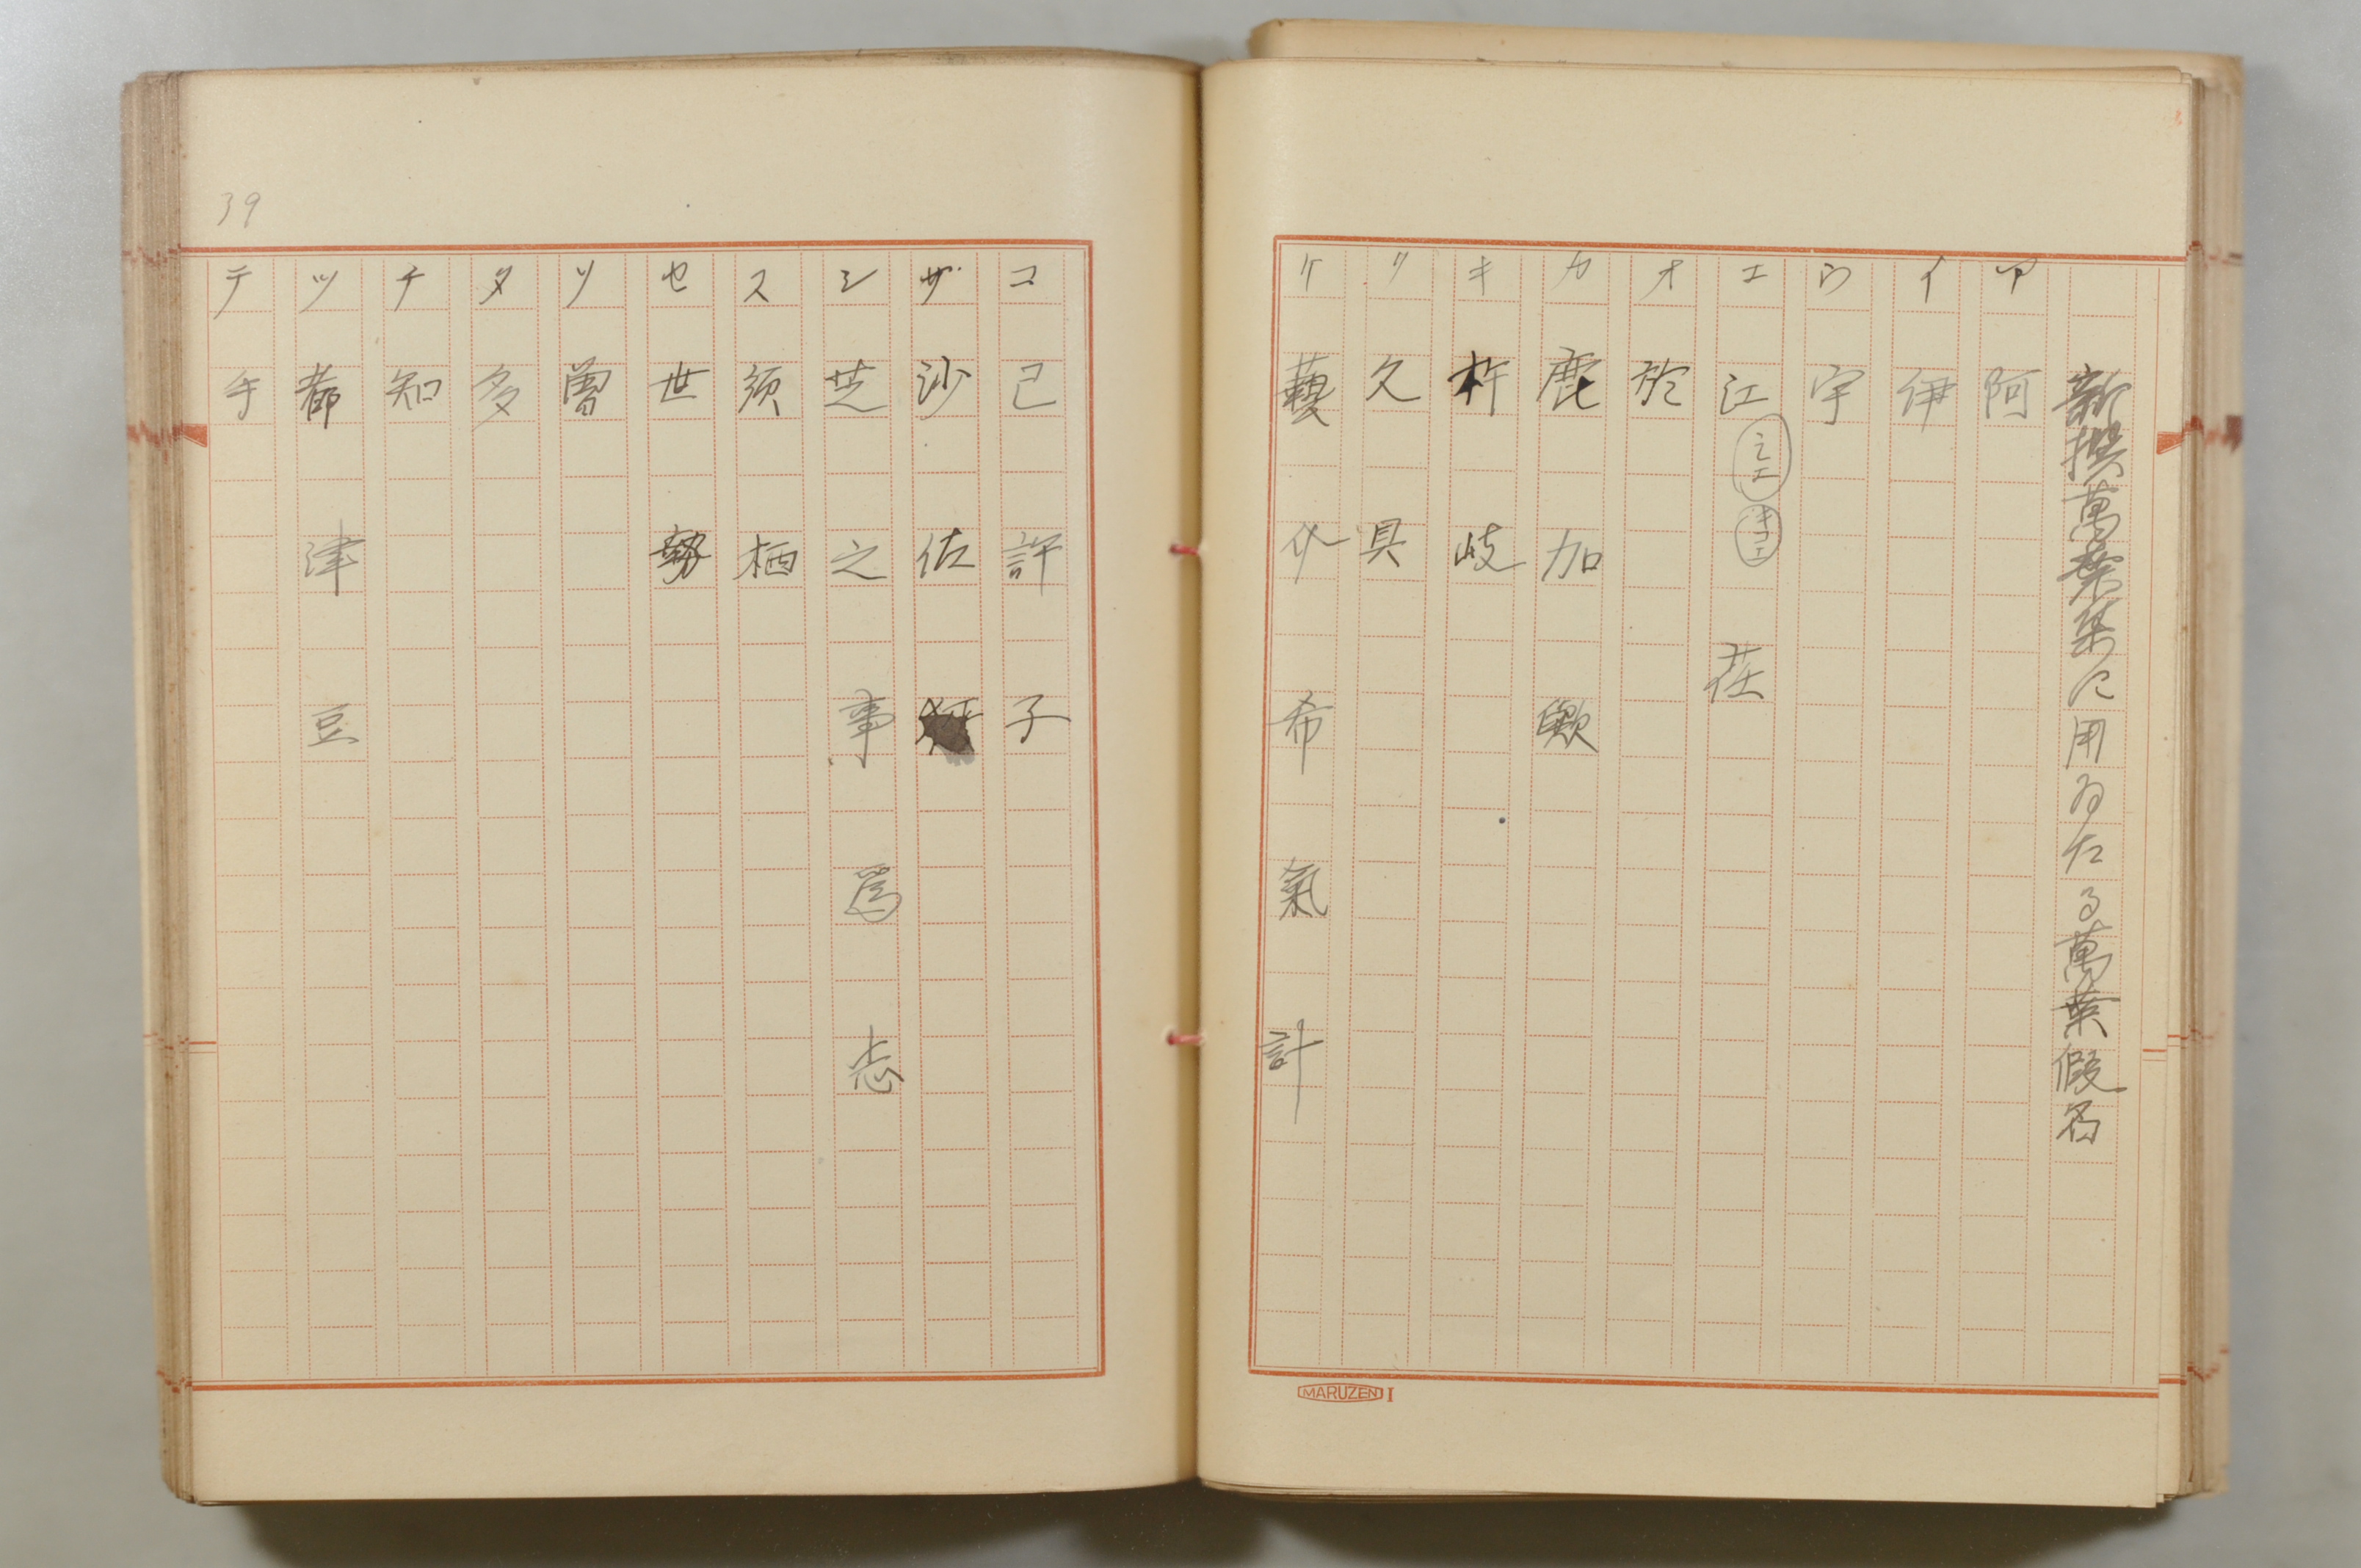 新撰萬葉集に用ゐたる萬葉假名
ア 阿
イ 伊
ウ 宇
エ 江 荏
オ 於
カ 鹿 加 歟
キ 杵 岐
ク 久 具
ケ 藝 介 希 氣 計
MARUZEN I
コ 己 許 子
サ 沙 佐
シ 芝 之 事 爲 志
ス 須 栖
セ 世 勢
ソ 曽
タ 多
チ 知
ツ 都 津 豆
テ 手
39